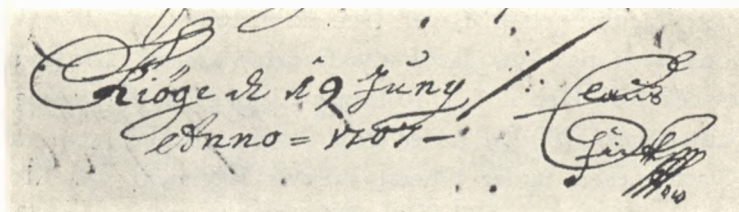 Kiöge d 19 Juny
Anno = 1707 -
Claus